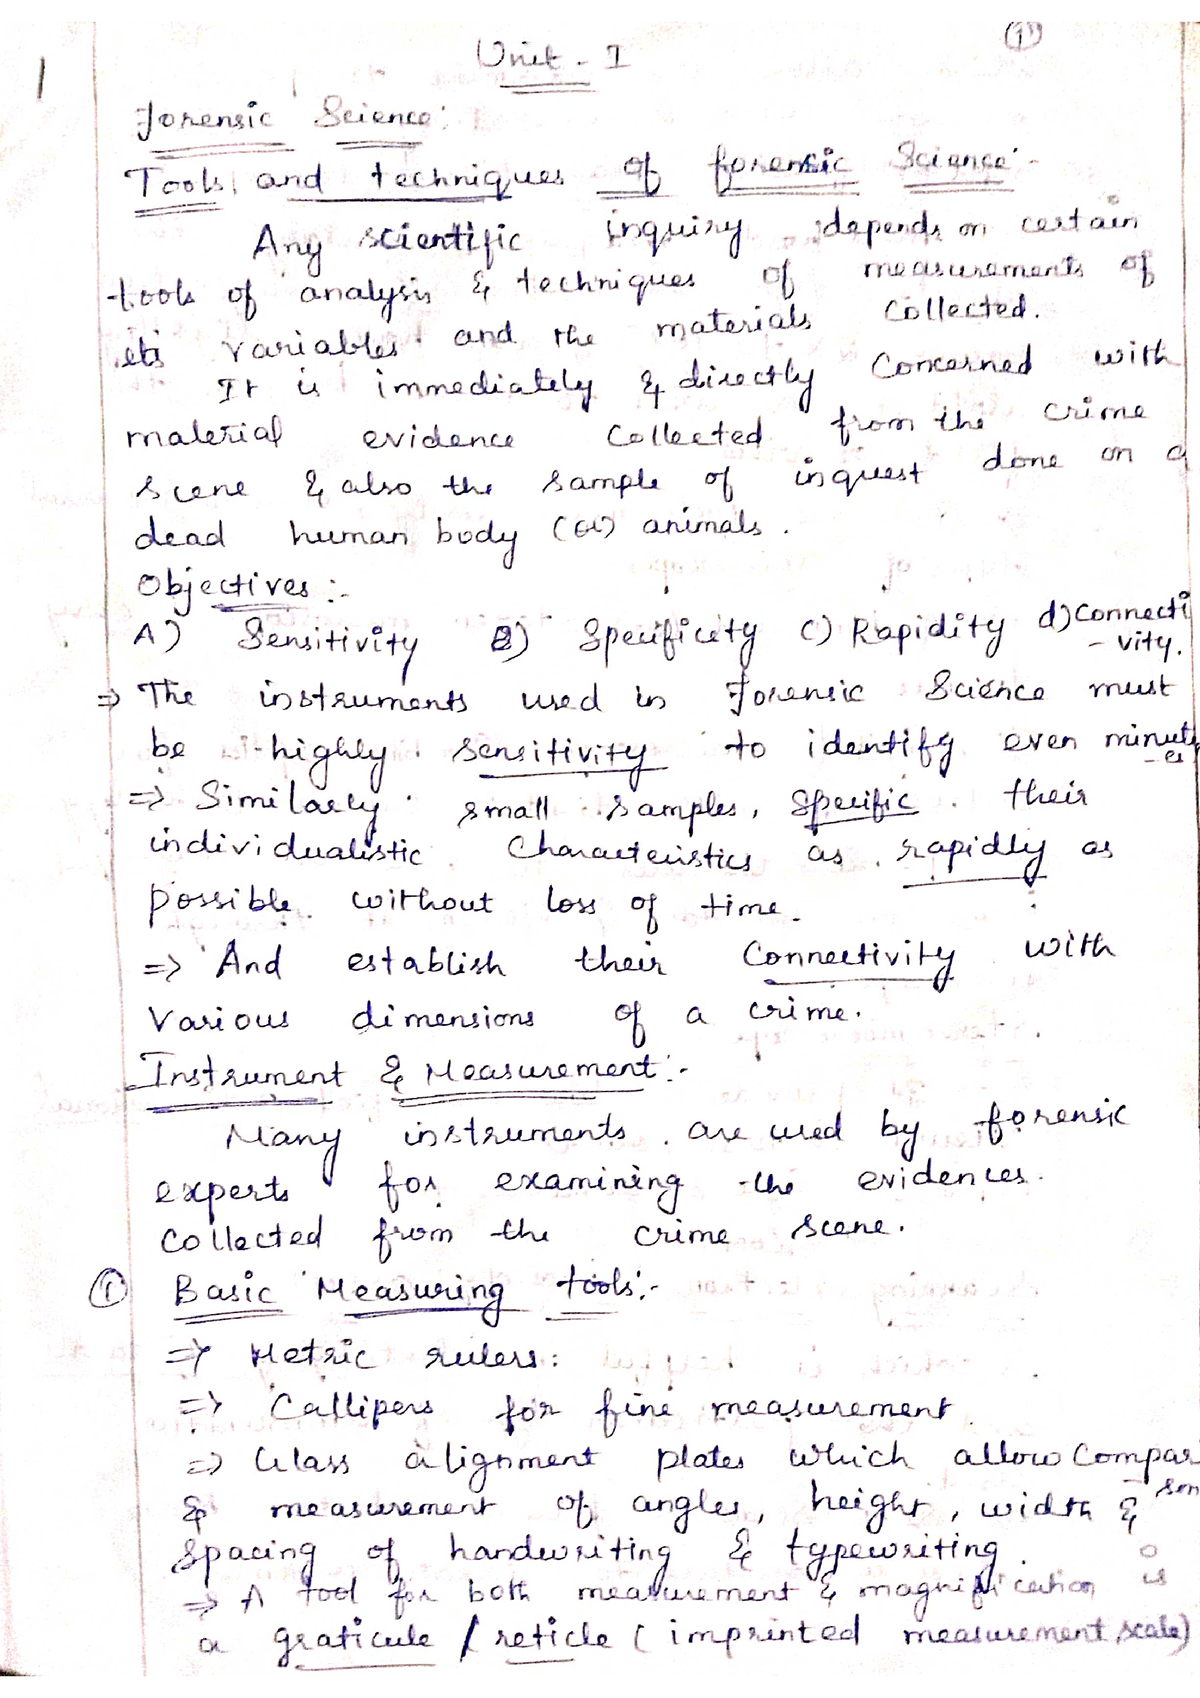 (1)
Unit - I
1
Forensic Science:
Tools and techniques of forensic Science:-
Any scientific inquiry depends on certain
tools of analysis & techniques of measurements of
its variables and the materials collected.
It is immediately & directly concerned with
material evidence collected from the crime
scene & also the sample of inquest done on a
dead human body (or) animals.
Objectives :-
A) Sensitivity B) Specificity C) Rapidity d) Connecti
- vity.
=> The instruments used in Forensic Science must
be highly sensitivity to identify even minute
=> Similarly small samples, specific their
individualistic Characteristics as rapidly as
possible without loss of time.
=> And establish their Connectivity with
Various dimensions of a crime.
Instrument & Measurement:-
Many instruments are used by forensic
experts for examining the evidences.
Collected from the crime scene.
① Basic Measuring tools:-
=> Metric rulers:
=> Callipers for fine measurement
=> Glass alignment plates which allow Compari
son
& measurement of angles, height, width &
Spacing of handwriting & typewriting.
=> A tool for both measurement & magnification is
a graticule / reticle (imprinted measurement scale)